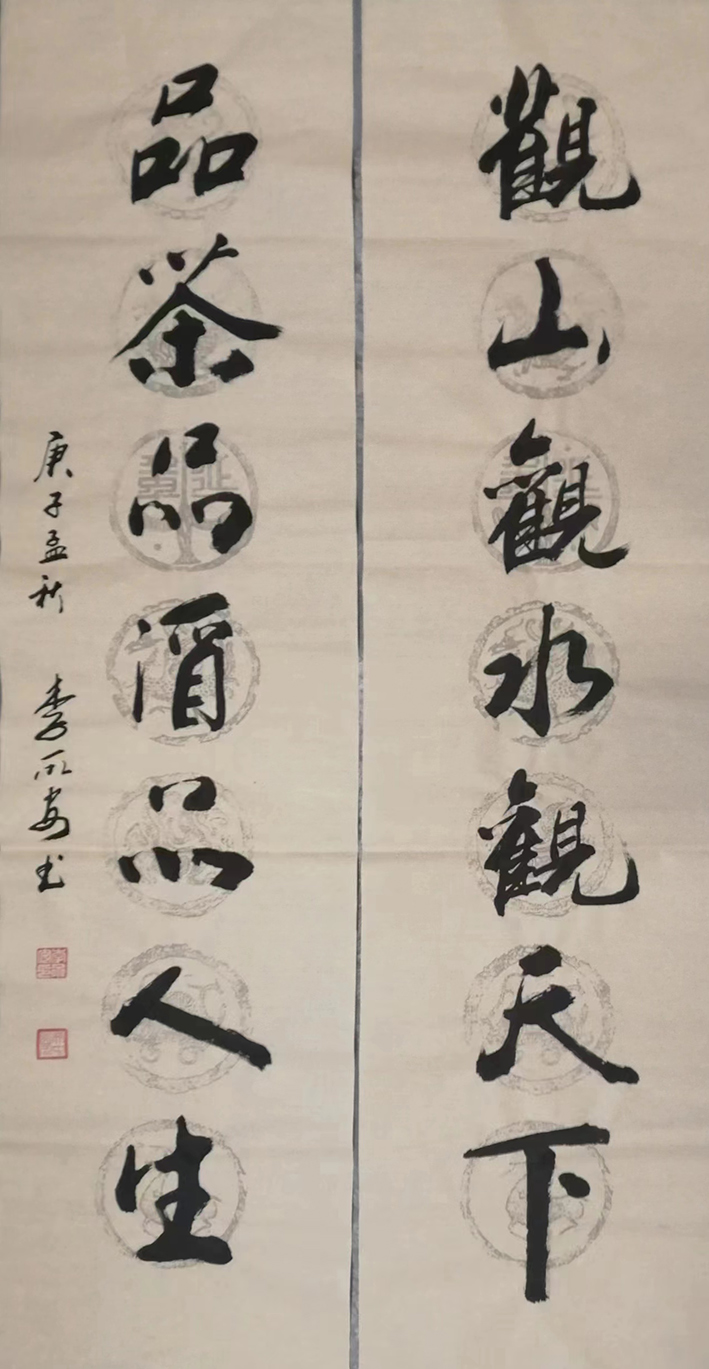 觀山觀水觀天下
品茶品酒品人生
庚子孟秋 李 书